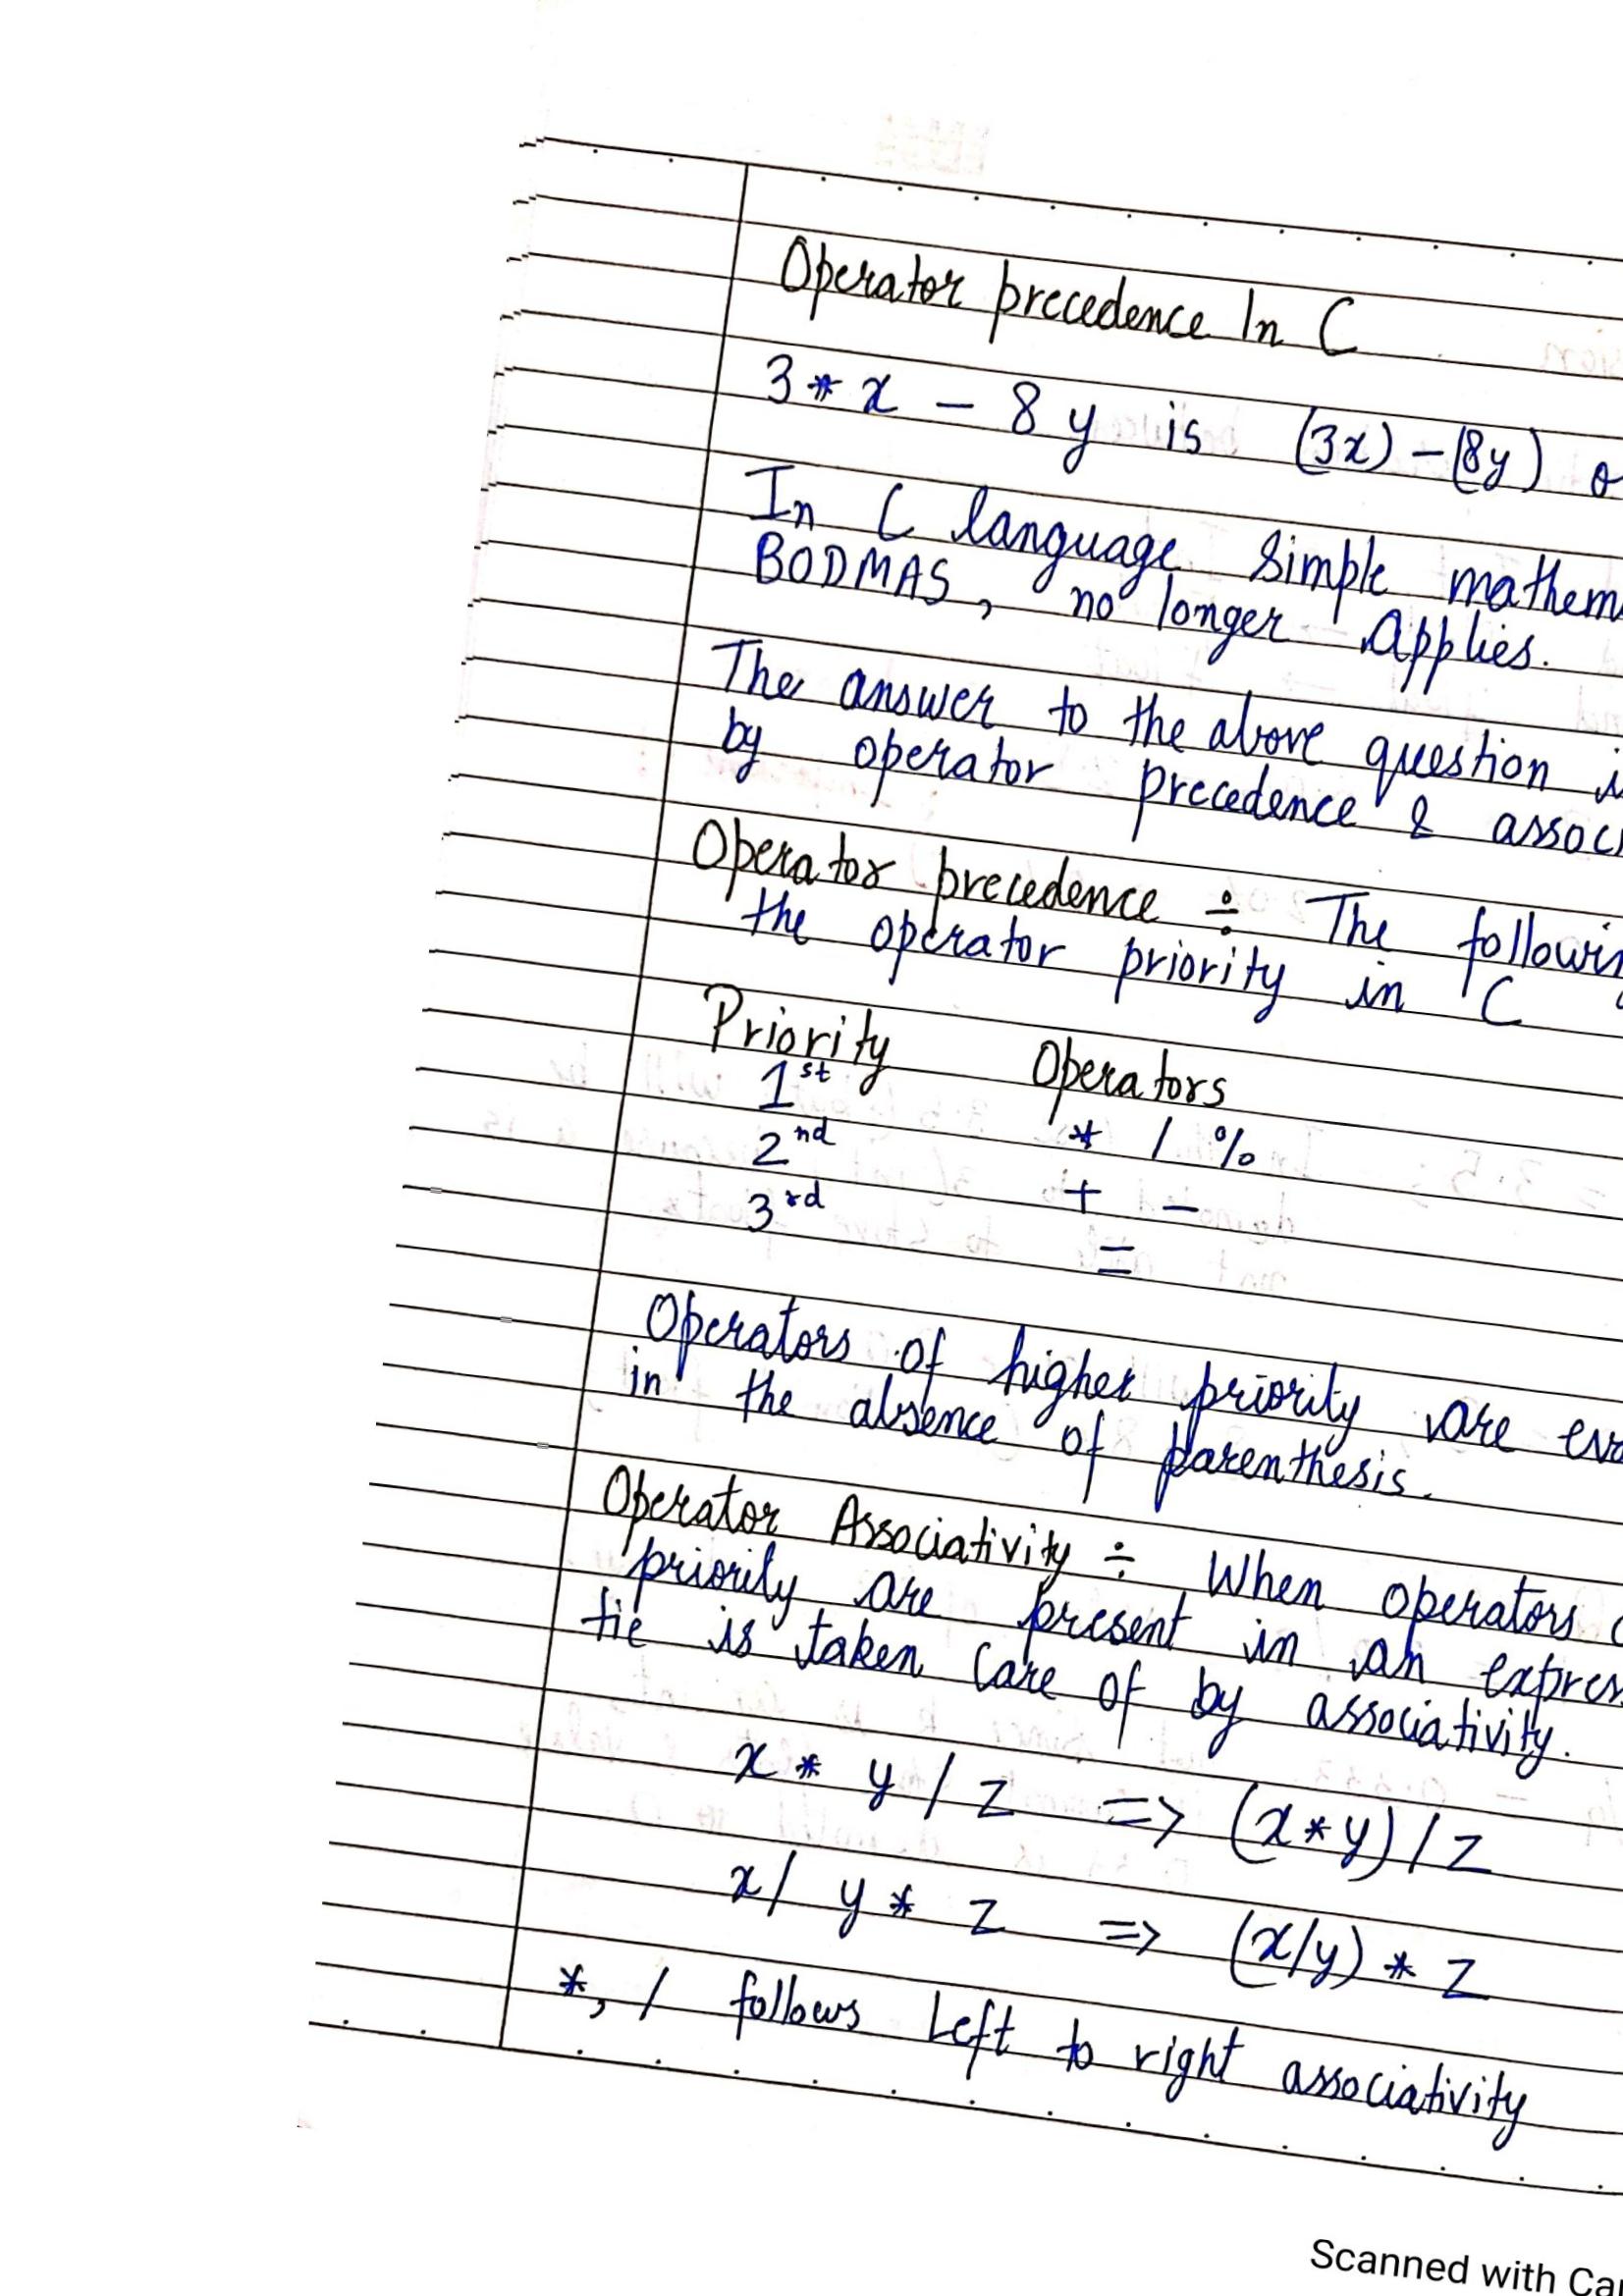 Operator precedence In C
3 * x - 8 y is (3x) - (8y) o
In C language simple mathem
BODMAS, no longer applies.
The answer to the above question i
by operator precedence & assoc
Operator precedence ÷ The followin
the operator priority in C
Priority Operators
1st * / %
2nd + -
3rd =
Operators of higher priority are eva
in the absence of parenthesis.
Operator Associativity ÷ When operators o
priority are present in an expres
tie is taken care of by associativity.
x * y / z => (x * y) / z
x / y * z => (x/y) * z
*, / follows left to right associativity
Scanned with Ca